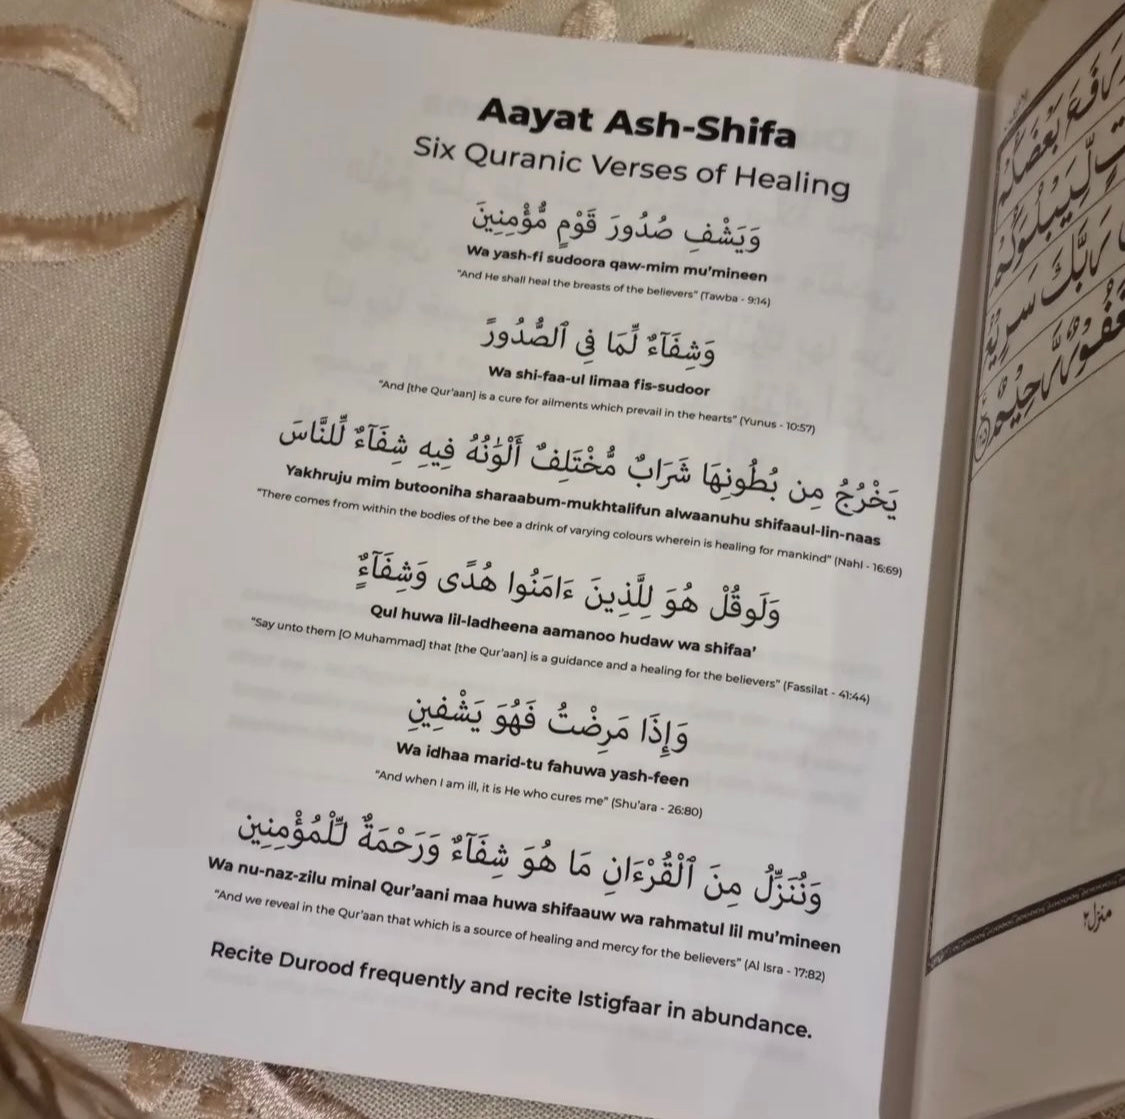 Aayat Ash-Shifa
Six Quranic Verses of Healing
وَيَشْفِ صُدُورَ قَوْمٍ مُّؤْمِنِينَ
Wa yash-fi sudoora qaw-mim mu’mineen
"And He shall heal the breasts of the believers" (Tawba - 9:14)
وَشِفَآءٌ لِّمَا فِى ٱلصُّدُورً
Wa shi-faa-ul limaa fis-sudoor
"And [the Qur'aan] is a cure for ailments which prevail in the hearts" (Yunus - 10:57)
يَخْرُجُ مِن بُطُونِهَا شَرَابٌ مُّخْتَلِفٌ أَلْوَٰنُهُۥ فِيهِ شِفَآءٌ لِّلنَّاسَ
Yakhruju mim butooniha sharaabum-mukhtalifun alwaanuhu shifaaul-lin-naas
"There comes from within the bodies of the bee a drink of varying colours wherein is healing for mankind" (Nahl - 16:69)
وَلَوقُلْ هُوَ لِلَّذِينَ ءَامَنُوا هُدًى وَشِفَآءٌٍ
Qul huwa lil-ladheena aamanoo hudaw wa shifaa’
"Say unto them [O Muhammad] that [the Qur'aan] is a guidance and a healing for the believers" (Fassilat - 41:44)
وَإِذَا مَرِضْتُ فَهُوَ يَشْفِينِ
Wa idhaa marid-tu fahuwa yash-feen
"And when I am ill, it is He who cures me" (Shu'ara - 26:80)
وَنُنَزِّلُ مِنَ ٱلْقُرْءَانِ مَا هُوَ شِفَآءٌ وَرَحْمَةٌ لِّلْمُؤْمِنِين
Wa nu-naz-zilu minal Qur’aani maa huwa shifaauw wa rahmatul lil mu’mineen
"And we reveal in the Qur'aan that which is a source of healing and mercy for the believers" (Al Isra - 17:82)
Recite Durood frequently and recite Istigfaar in abundance.
منزل٢